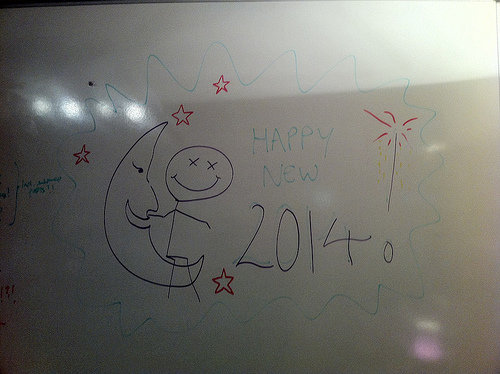 HAPPY
NEW
2014.